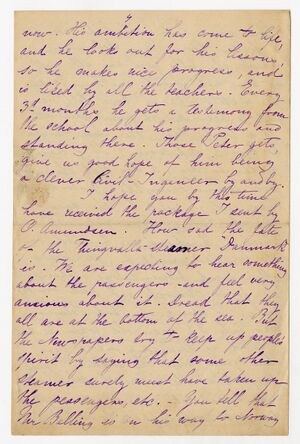 now. His ambition has come to life,
and he looks out for his lessons,
so he makes nice progress, and
is liked by all the teachers. Every
3d months he gets a testimony from
the school about his progress and
standing there. Those Peter gets,
give us good hope of him being
a clever Civil-Ingeneer by and by.
I hope you by this time
have received the package I sent by
O. Amundsen. How sad the fate
of the Thingvalla-Steamer Denmark
is. We are expecting to hear something
about the passengers and feel very
anxious about it. Dread that they
all are at the bottom of the sea. But
the Newspapers try to keep up people's
spirit by saying that some other
steamer surely must have taken up
the passengers, etc. – You tell that
Mr. Balling is on his way to Norway